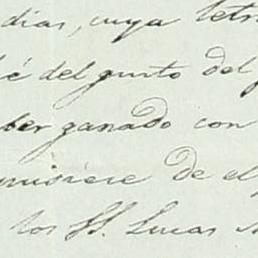 dias, cuya letr
é del punto del
ber ganado con
misiere de el
los SS. Lucas